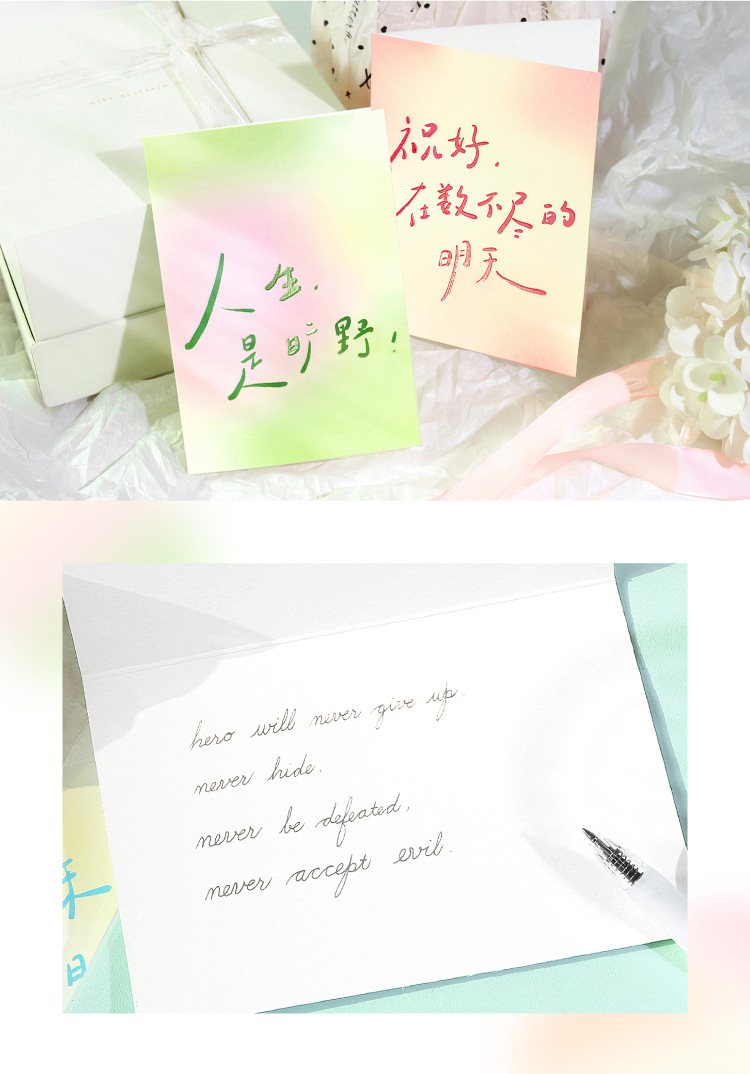 祝好，
在数不尽的
明天
人生，
是旷野！
hero will never give up,
never hide,
never be defeated,
never accept evil.